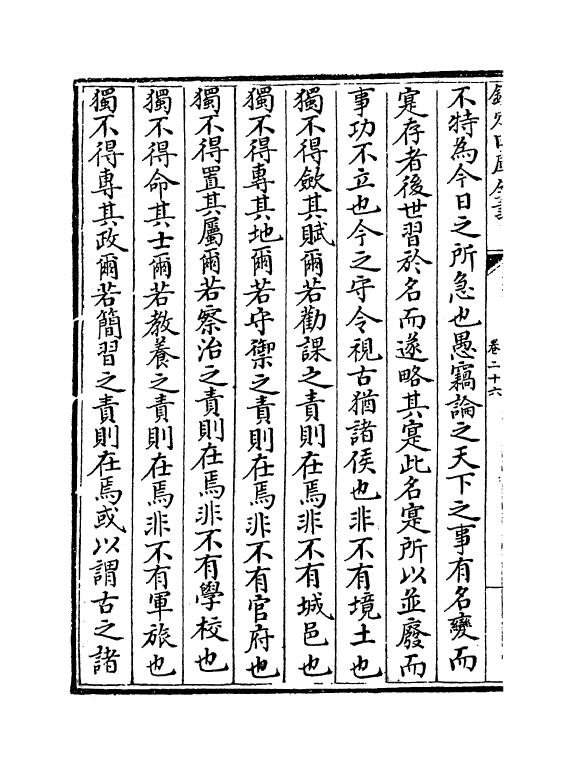 欽定四庫全書
卷二十六
不特為今日之所急也愚竊論之天下之事有名變而
寔存者後世習於名而遂略其寔此名寔所以並廢而
事功不立也今之守令視古猶諸侯也非不有境土也
獨不得斂其賦爾若勸課之責則在焉非不有城邑也
獨不得專其地爾若守禦之責則在焉非不有官府也
獨不得置其屬爾若察治之責則在焉非不有學校也
獨不得命其士爾若教養之責則在焉非不有軍旅也
獨不得專其政爾若簡習之責則在焉或以謂古之諸